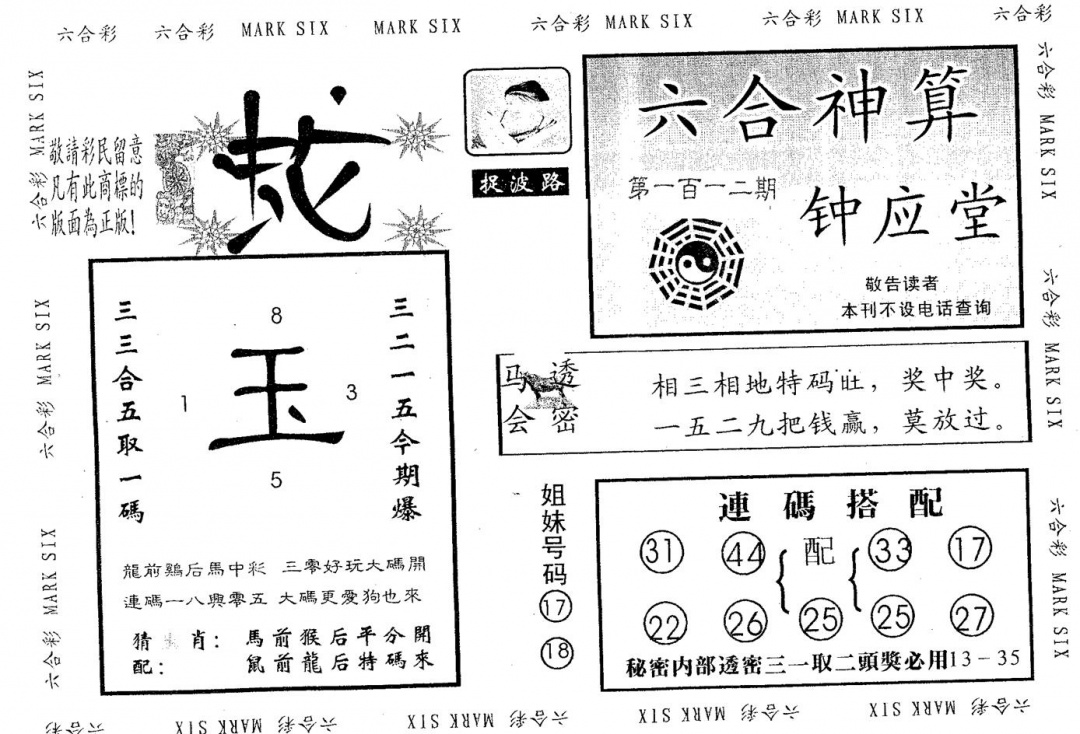 六合彩 六合彩 MARK SIX MARK SIX 六合彩 MARK SIX 六合彩 MARK SIX 六合彩
六合彩 MARK SIX
敬請彩民留意
凡有此商標的
版面為正版!
捉波路
六合神算
第一百一二期
钟应堂
敬告读者
本刊不设电话查询
六合彩 MARK SIX
三三合五取一碼
8
1
玉
3
5
三二一五今期爆
龍前鷄后馬中彩 三零好玩大碼開
連碼一八興零五 大碼更愛狗也來
猜 肖: 馬前猴后平分開
配: 鼠前龍后特碼來
马会
透密
相三相地特码旺，奖中奖。
一五二九把钱赢，莫放过。
姐妹号码
17
18
連碼搭配
31 44 { 配 { 33 17
22 26 25 25 27
秘密内部透密三一取二頭獎必用13-35
六合彩 MARK SIX
六合彩 MARK SIX
六合彩 MARK SIX
六合彩 MARK SIX
六合彩 六合彩 MARK SIX 六合彩 MARK SIX 六合彩 MARK SIX 六合彩 MARK SIX